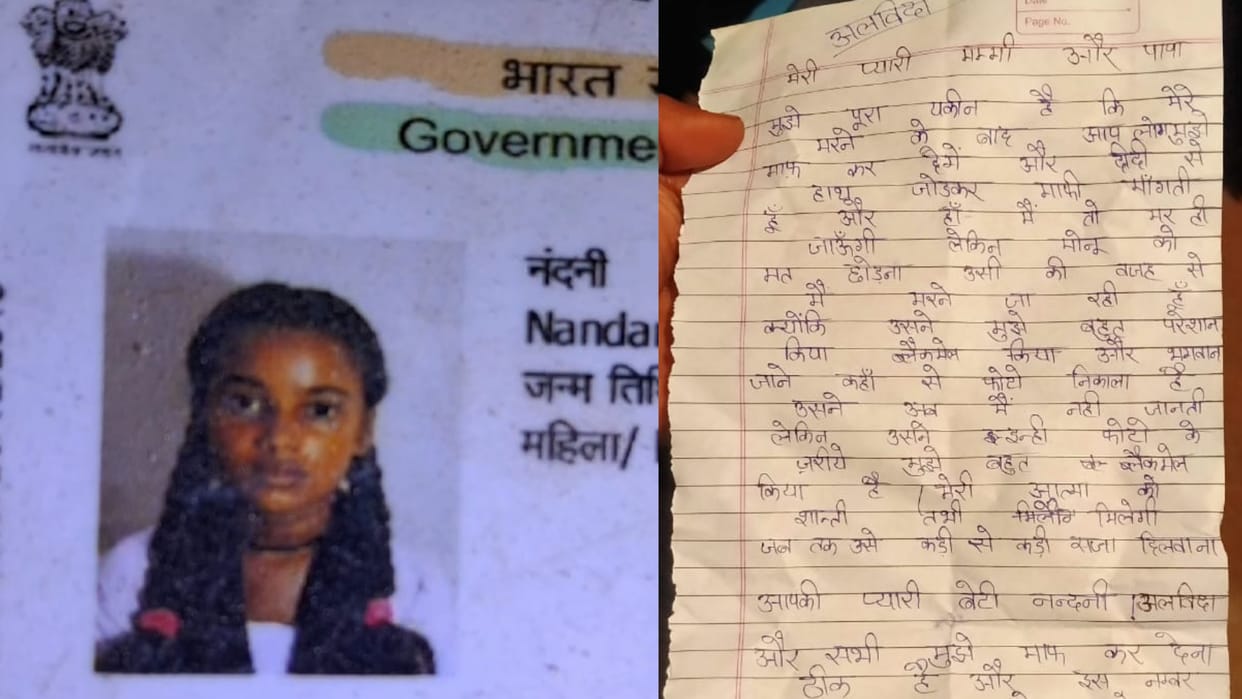 भारत स
Governme
नंदनी
Nanda
जन्म तिथि
महिला/
Date
Page No.
अलविदा
मेरी प्यारी मम्मी और पापा
मुझे पूरा यकीन है कि मेरे
मरने के बाद आप लोग मुझे
माफ कर देगें और दीदी से
हाथ जोडकर माफी माँगती
हूँ और हाँ मैं तो मर ही
जाऊँगी लेकिन मोनू को
मत छोड़ना उसी की वजह से
मैं मरने जा रही हूँ
क्योंकि उसने मुझे बहुत परेशान
किया ब्लैकमेल किया और भगवान
जाने कहाँ से फोटो निकाला है
उसने अब मैं नही जानती
लेकिन उसने इन्ही फोटो के
ज़रीये मुझे बहुत ब्लैकमेल
किया है मेरी आत्मा को
शान्ती तभी मिलेगी
जब तक उसे कड़ी से कड़ी सजा दिलवाना
आपकी प्यारी बेटी नन्दनी अलविदा
और सभी मुझे माफ कर देना
ठीक है और इस नम्बर